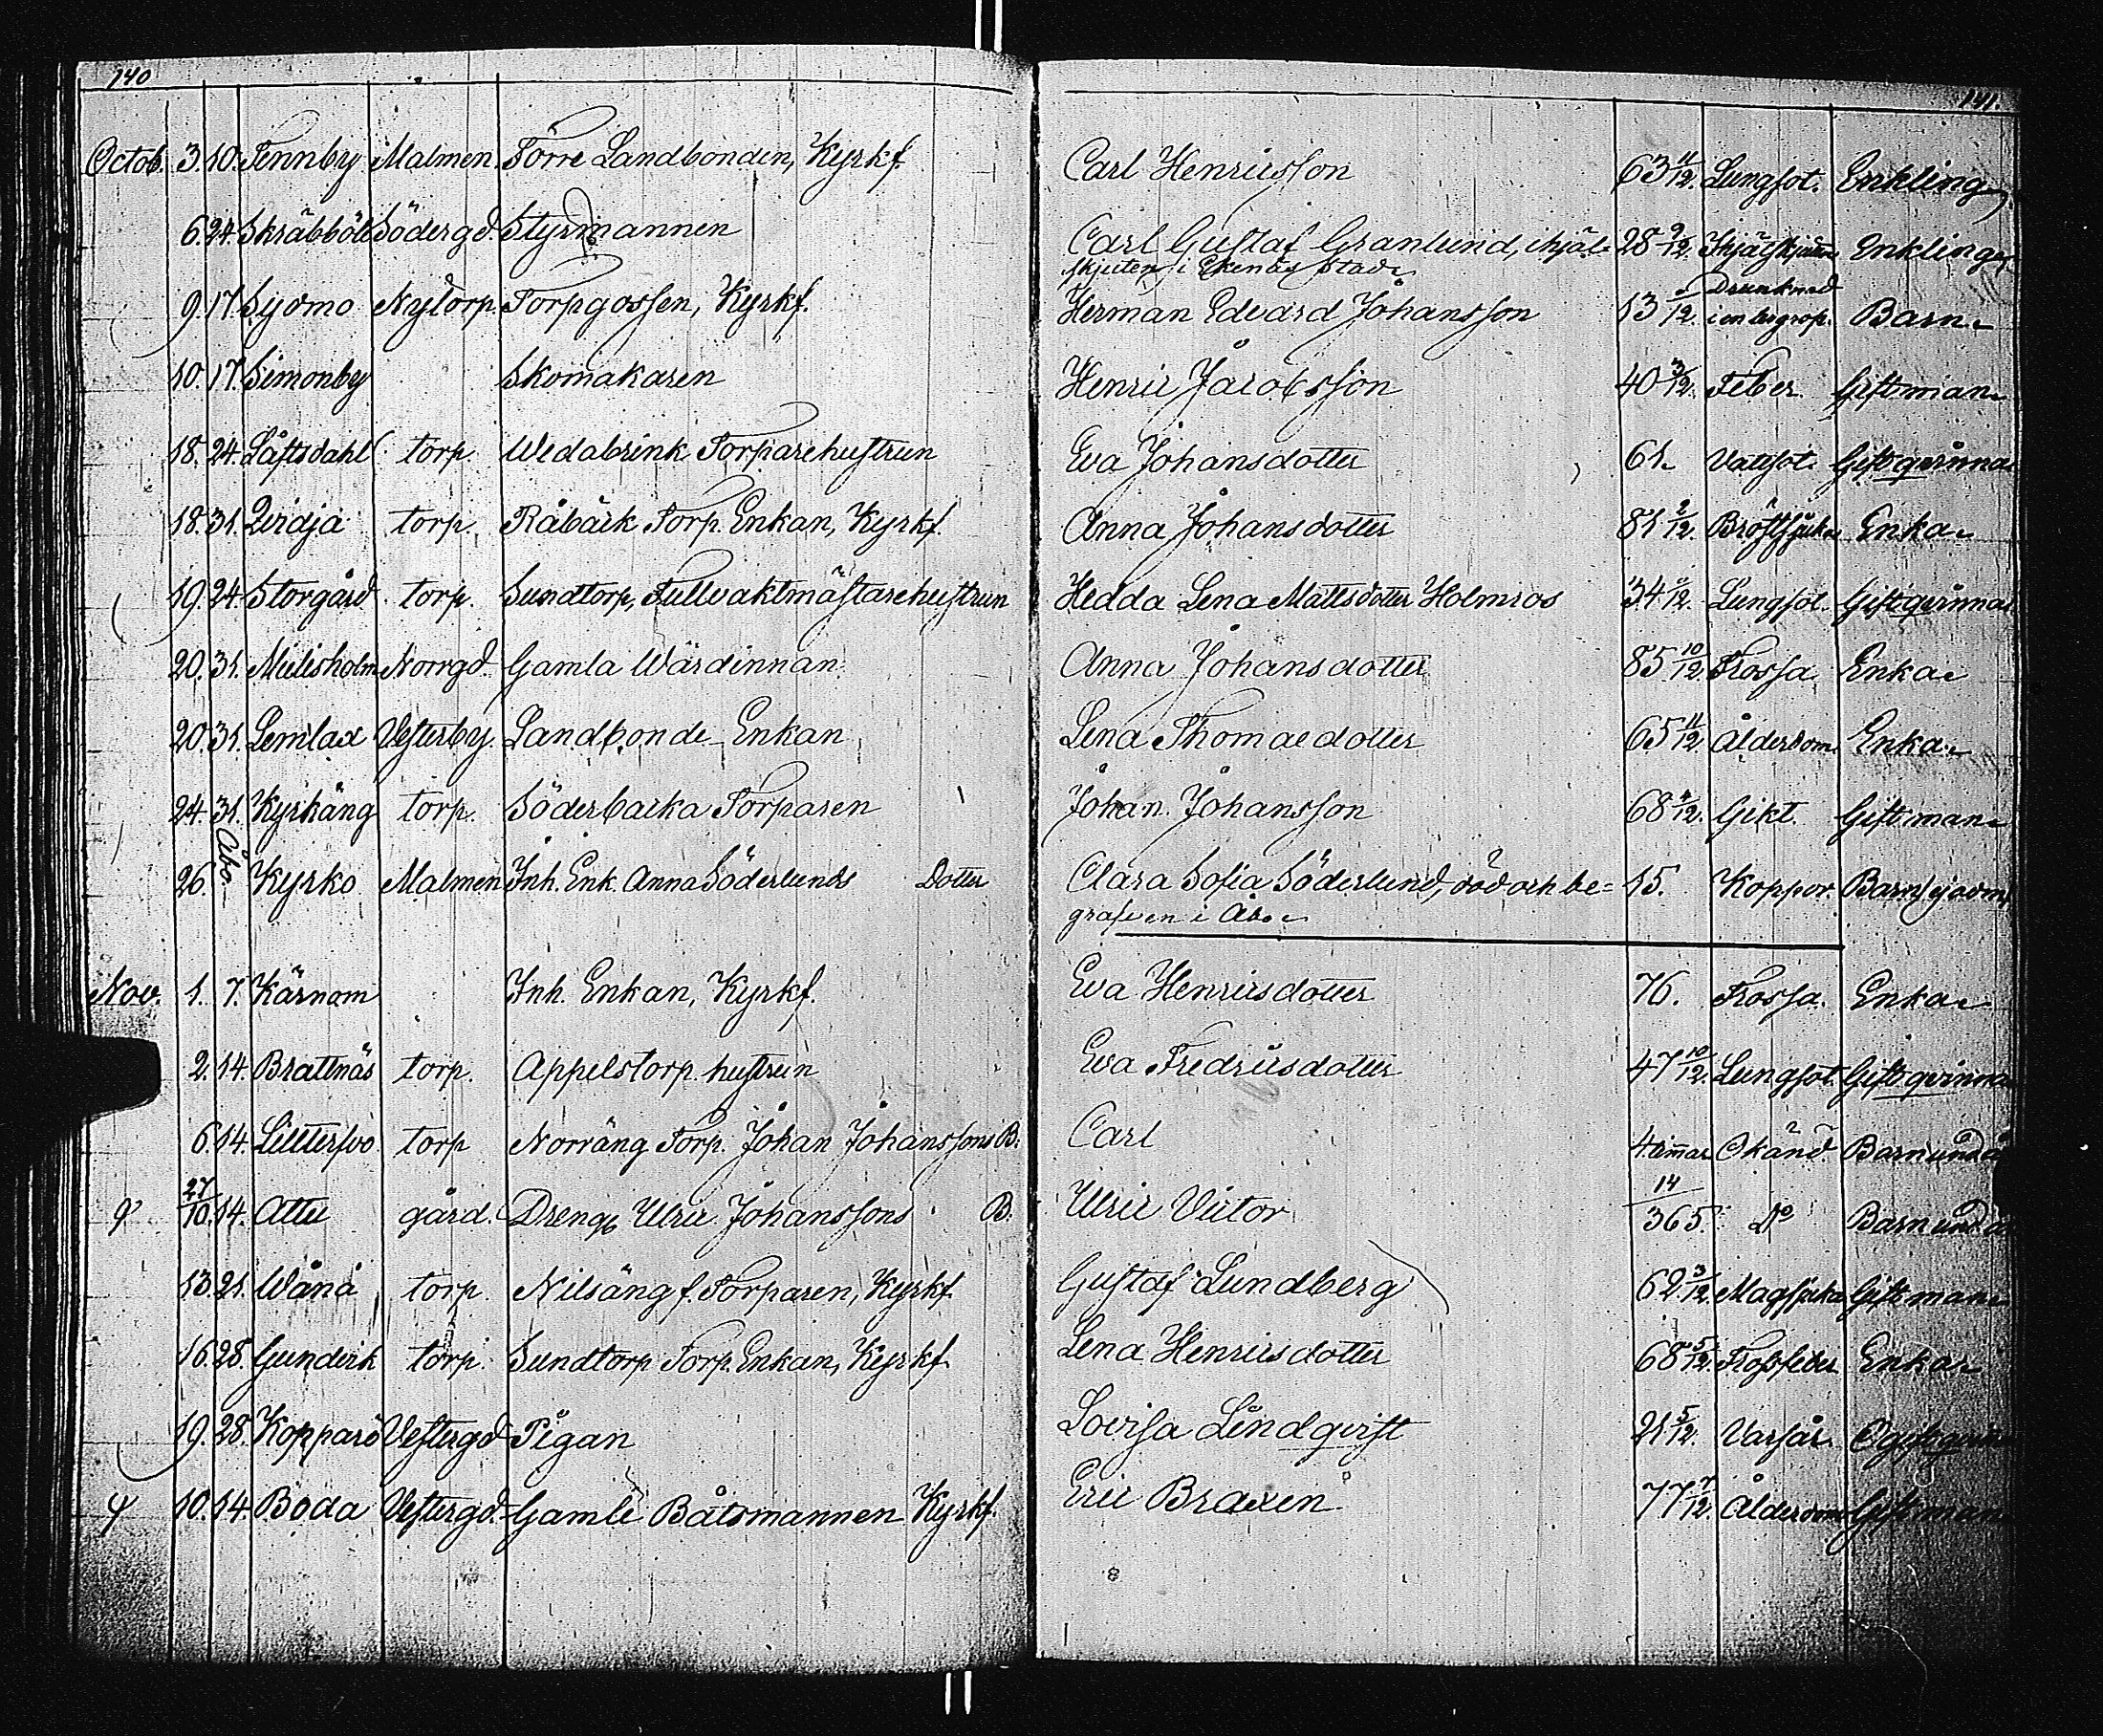 140
141.
Octob. 3. 10. Tennby Malmen. Förre Landbonden, Kyrkf. Carl Henricsson 63 11/12. Lungsot. Enkling
6. 24. Skräbböle Södergd. Styrmannen Carl Gustaf Granlund, ihjäl- 28 9/12. Enkling
skjuten i Ekenäs stad.
9. 17. Lyomo Nytorp. Torpgossen, Kyrkf. Herman Edvard Johansson 13 /12. Drunknad i en Barn.
10. 17. Simonby Skomakaren Henric Jacobsson 40 3/12. Feber. Gift man
18. 24. Låftsdahl torp Wedabrink Torparehustrun Eva Johansdotter 61. Vattsot. Gift qvinna
18. 31. Qvidja torp. Råbäck Torp. Enkan, Kyrkf. Anna Johansdotter 81 2/12. Bröstsjuka Enka
19. 24. Storgård torp. Sundtorp, Tullvaktmästarehustrun Hedda Lena Mattsdotter Holmroos 34 /12. Lungsot. Gift qvinna
20. 31. Mielisholm Norrgd. Gamla Wärdinnan Anna Johansdotter 85 10/12. Frossa Enka
20. 31. Lemlax Vesterby. Landbonde Enkan Lena Thomaedotter 65 11/12. Ålderdom. Enka
24. 31. Kyrkäng torp. Söderbacka Torparen Johan Johansson 68 /12. Gikt. Gift man
26. Åbo Kyrko Malmen Inh. Enk. Anna Söderlunds Dotter Clara Sofia Söderlund, död och be= 15. Koppor. Barn
grafven i Åbo
Nov. 1. 7. Kärnom Inh. Enkan, Kyrkf. Eva Henricsdotter 76. Frossa. Enka
2. 14. Brattnäs torp. Appelstorp hustrun Eva Fredricsdotter 47 10/12. Lungsot. Gift qvinna
6. 14. Lilltervo torp Norräng Torp. Johan Johanssons B. Carl 4 timar. Okänd Barn und.
27/10. 14. Attu gård. Dreng. Ulric Johanssons B. Ulric Victor 14/365. Do Barn und.
13. 21. Wånå torp. Nilsäng f. Torparen, Kyrkf. Gustaf Lundberg 62 3/12. Magsjuka Gift man
16. 28. Gundvik torp. Sundtorp Torp. Enkan, Kyrkf. Lena Henricsdotter 68 5/12. Frossfeber Enka
19. 28. Kopparö Vestergd. Pigan Lovisa Lindqvist 21 5/12. Varsår. Ogift
10. 14. Boda Vestergd. Gamle Båtsmannen Kyrkf. Eric Braxén 77 /12. Ålderdom Gift man